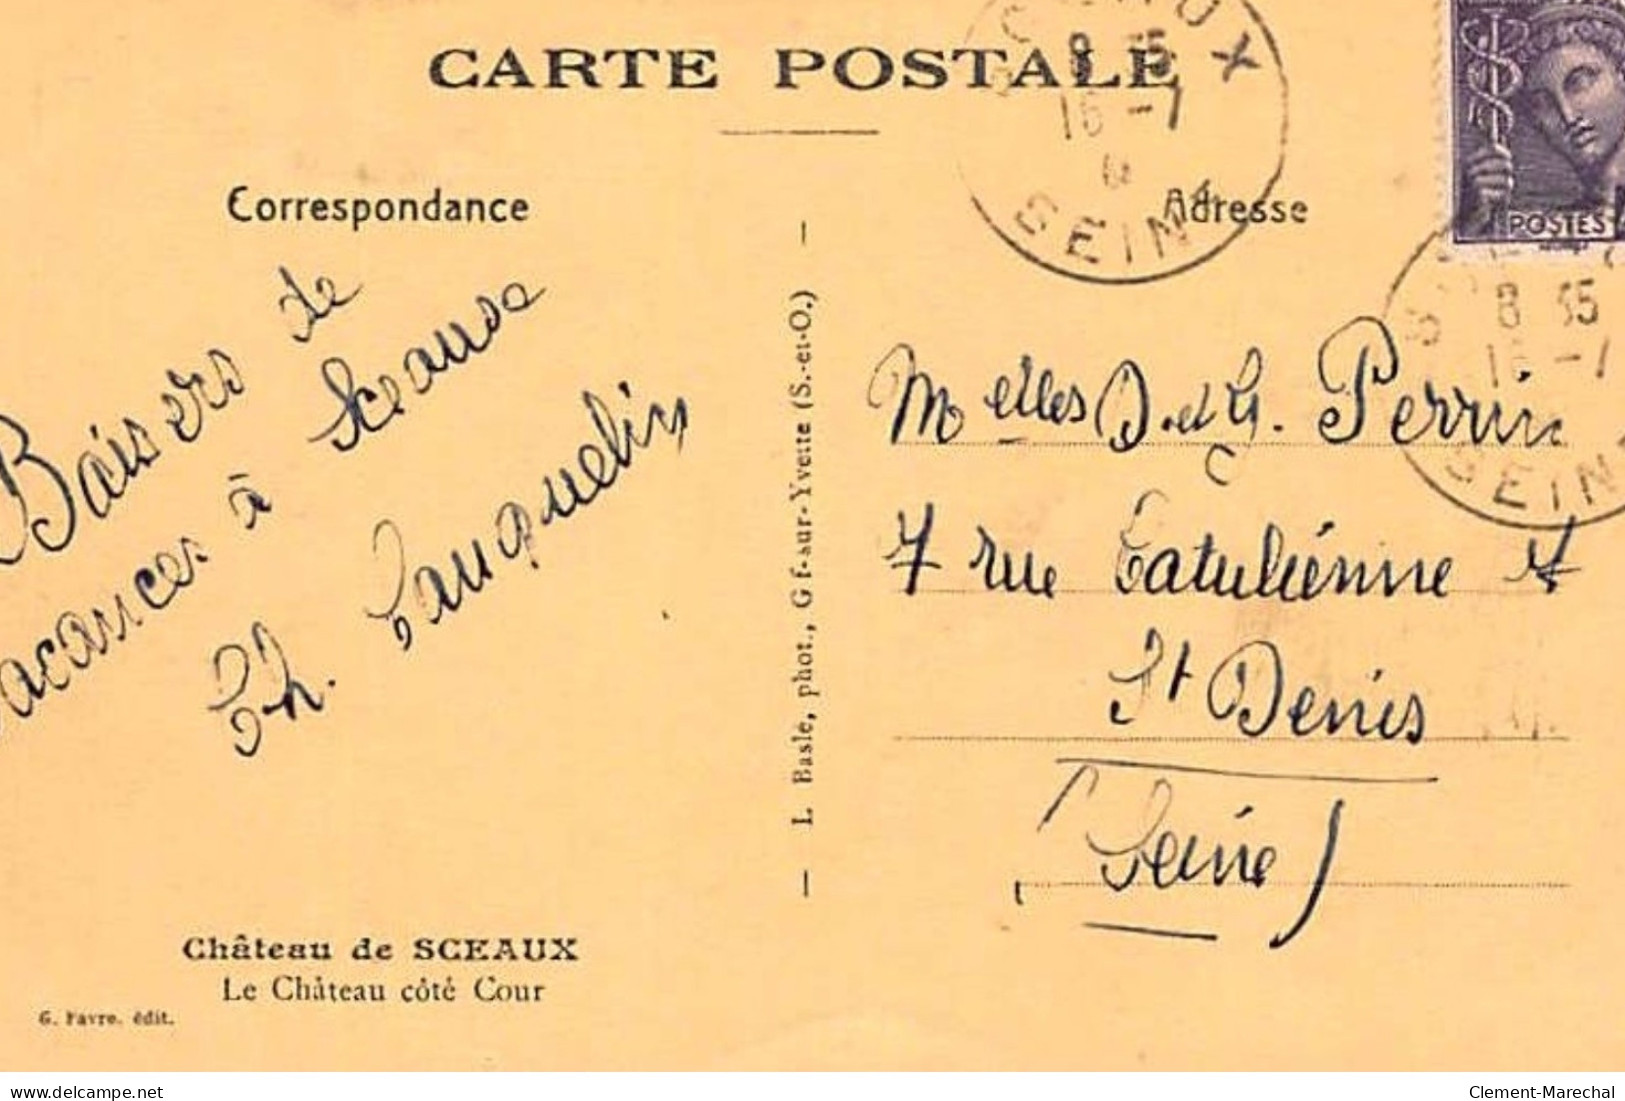 CARTE POSTALE
Correspondance
Adresse
SCEAUX
8 15
16 -7
SEINE
POSTES
8 35
16 -7
SEINE
Baisers de
vacances à Sceaux
Th. Tauquelin
L. Basle, phot., Gif-sur-Yvette (S.-et-O.)
Melles D. et G. Perrin
7 rue Catulienne
St Denis
(Seine)
Château de SCEAUX
Le Château côté Cour
G. Favre. édit.
delcampe.net
Clement-Marechal